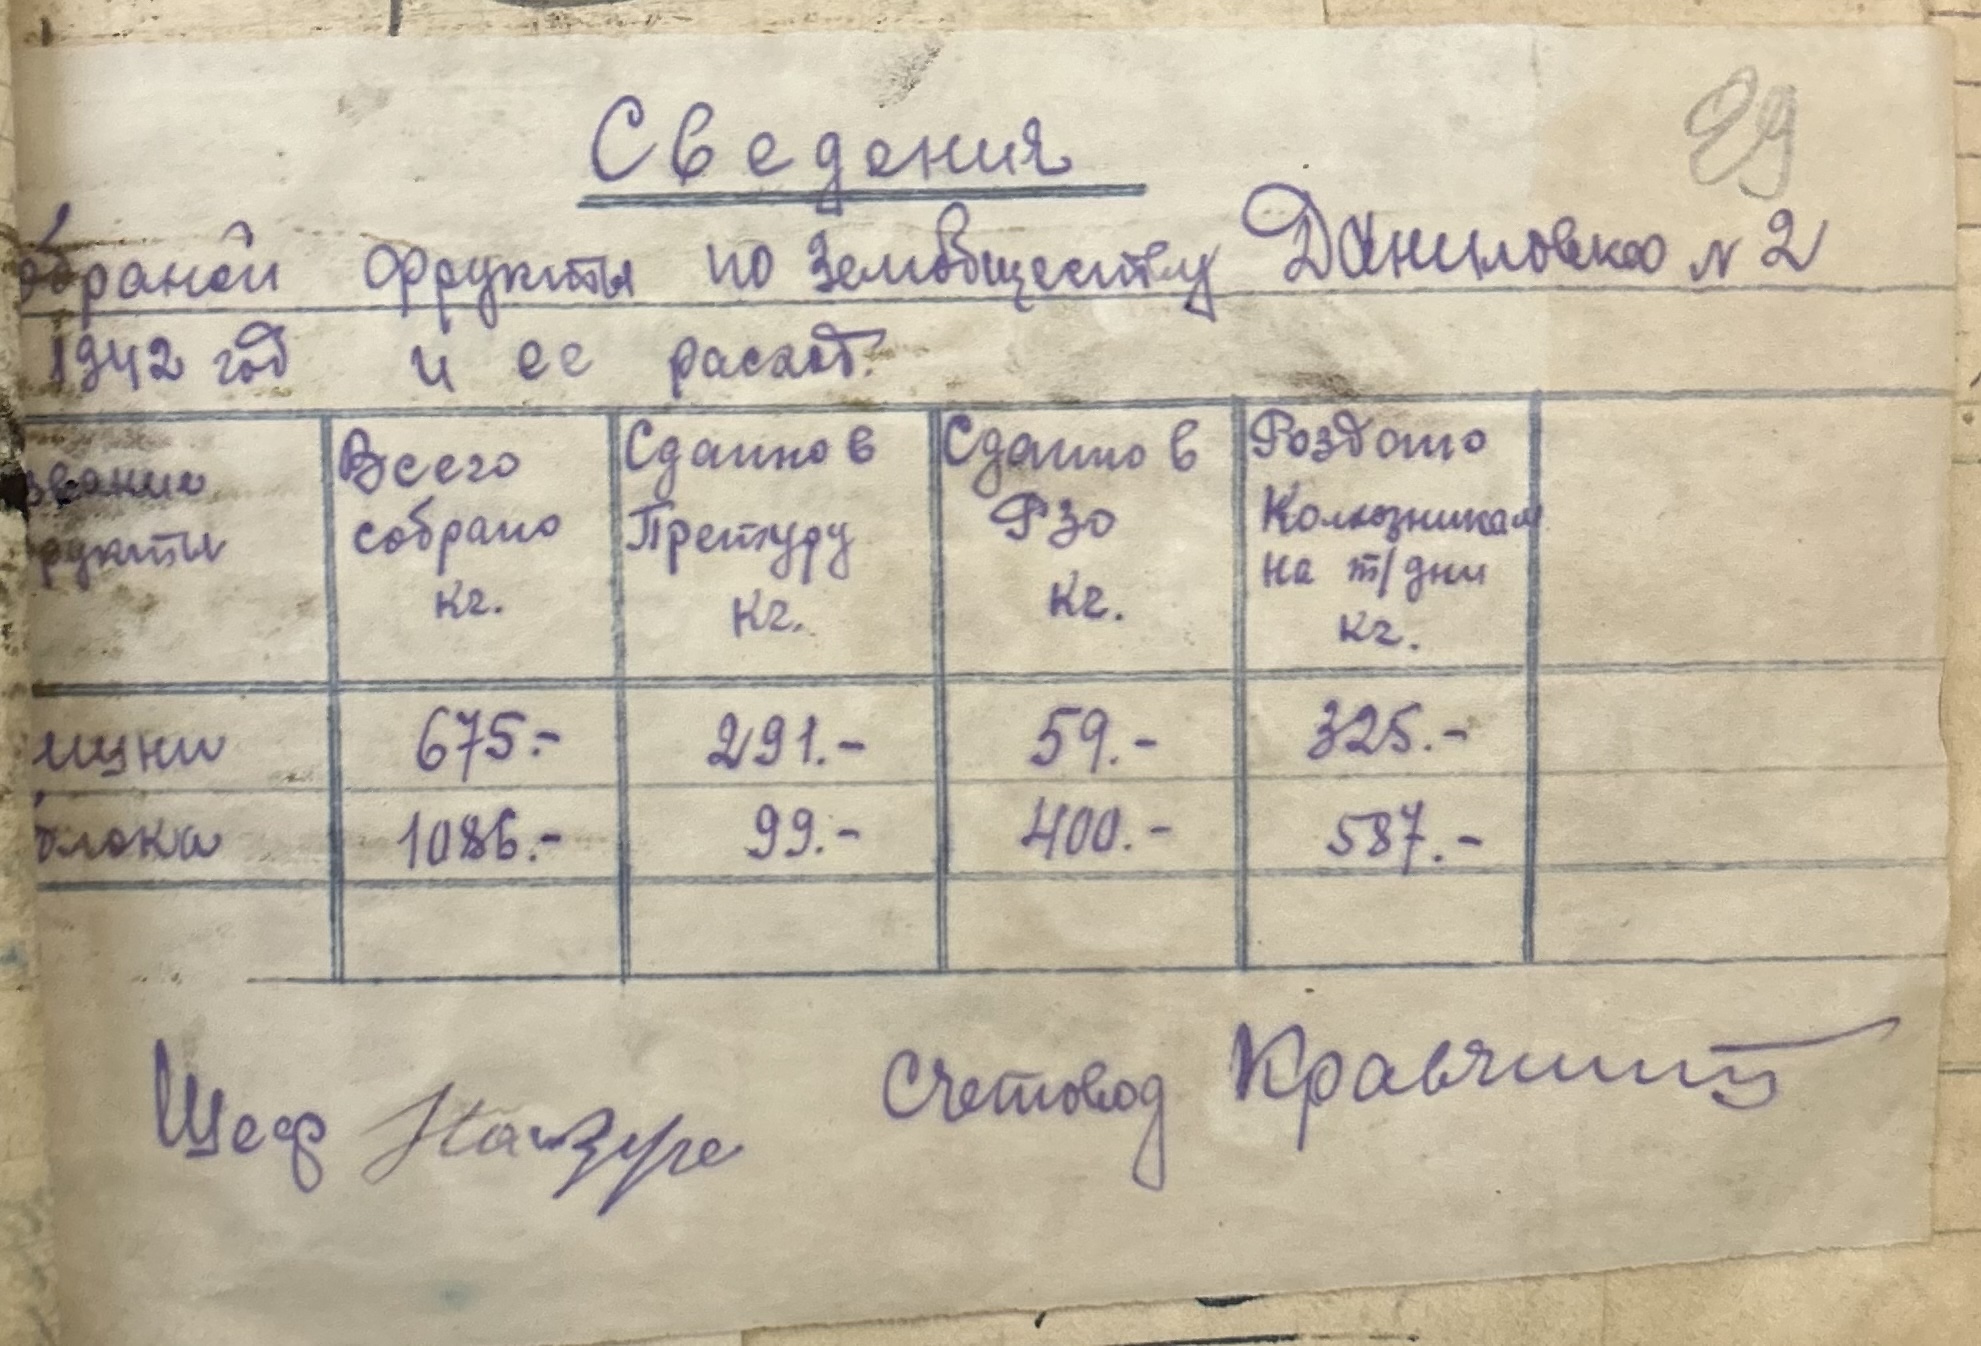 29
Сведения
обраной фрукты по Земобществу Даниловка N 2
1942 год и ее расход.
звание фрукты
Всего собрано кг.
Сданно в Претуру кг.
Сданно в РЗО кг.
Роздано Колхозникам на т/дни кг.
675.- 291.- 59.- 325.-
блока 1086.- 99.- 400.- 587.-
Шеф
Счетовод Кравчиний